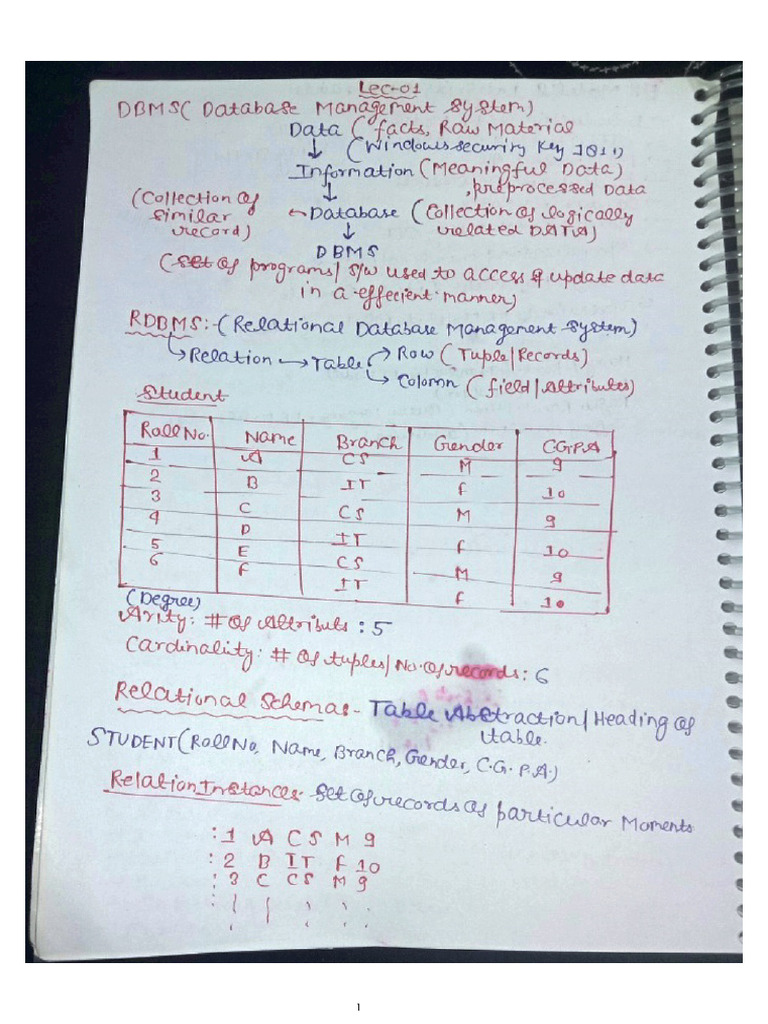 Lec-01
DBMS( Database Management System)
Data ( facts, Raw Material
(Windows security Key
Information (Meaningful Data)
, preprocessed Data
(Collection of similar record) ← Database (Collection of logically related DATA)
DBMS
(set of programs/ s/w used to access & update data
in a effecient manner)
RDBMS:-(Relational Database Management System)
Relation → Table Row (Tuple/Records)
Colomn (field/Attributes)
Student
Roll No. Name Branch Gender C.G.P.A
1 A CS M 9
2 B IT F 10
3 C CS M 9
4 D IT F 10
5 E CS M 9
6 F IT F 10
(Degree)
Arity: # of Attributs : 5
Cardinality: # of tuples/ No. of records: 6
Relational Schemas - Table Abstraction/ Heading of
table.
STUDENT(Roll No, Name, Branch, Gender, C.G.P.A.)
Relation Instances- Set of records of particular Moments
: 1 A CS M 9
: 2 B IT F 10
: 3 C CS M 9
1